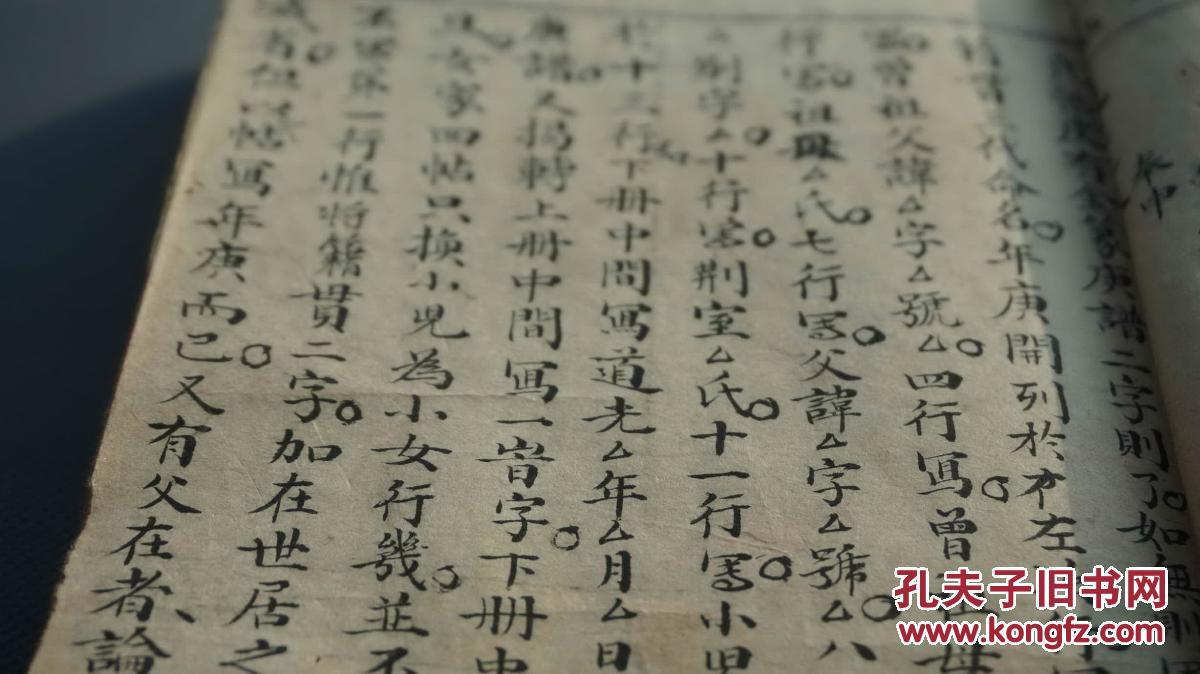 庚譜二字則了如無則
代命名年庚開列於左
曾祖父諱厶字厶號厶四行寫曾祖母
行寫祖母厶氏七行寫父諱厶字厶號厶八
荆字厶十行寫荆室厶氏十一行寫小児
十三行下册中間寫道光厶年厶月厶日
庚譜又揭轉上册中間寫一旹字下册中
女家回帖只換小児為小女行幾並不
第一行惟將籍貫二字加在世居之
帖寫年庚而已又有父在者論
孔夫子旧书网
www.kongfz.com